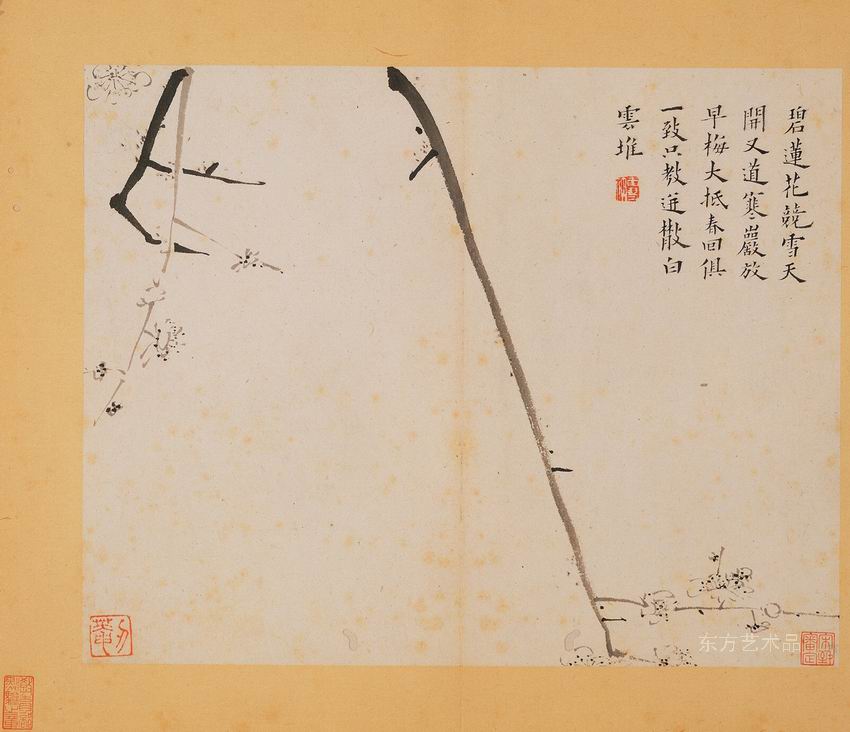 碧蓮花競雪天
開又道寒巖放
早梅大抵春回俱
一致只教迸散白
雲堆
东方艺术品